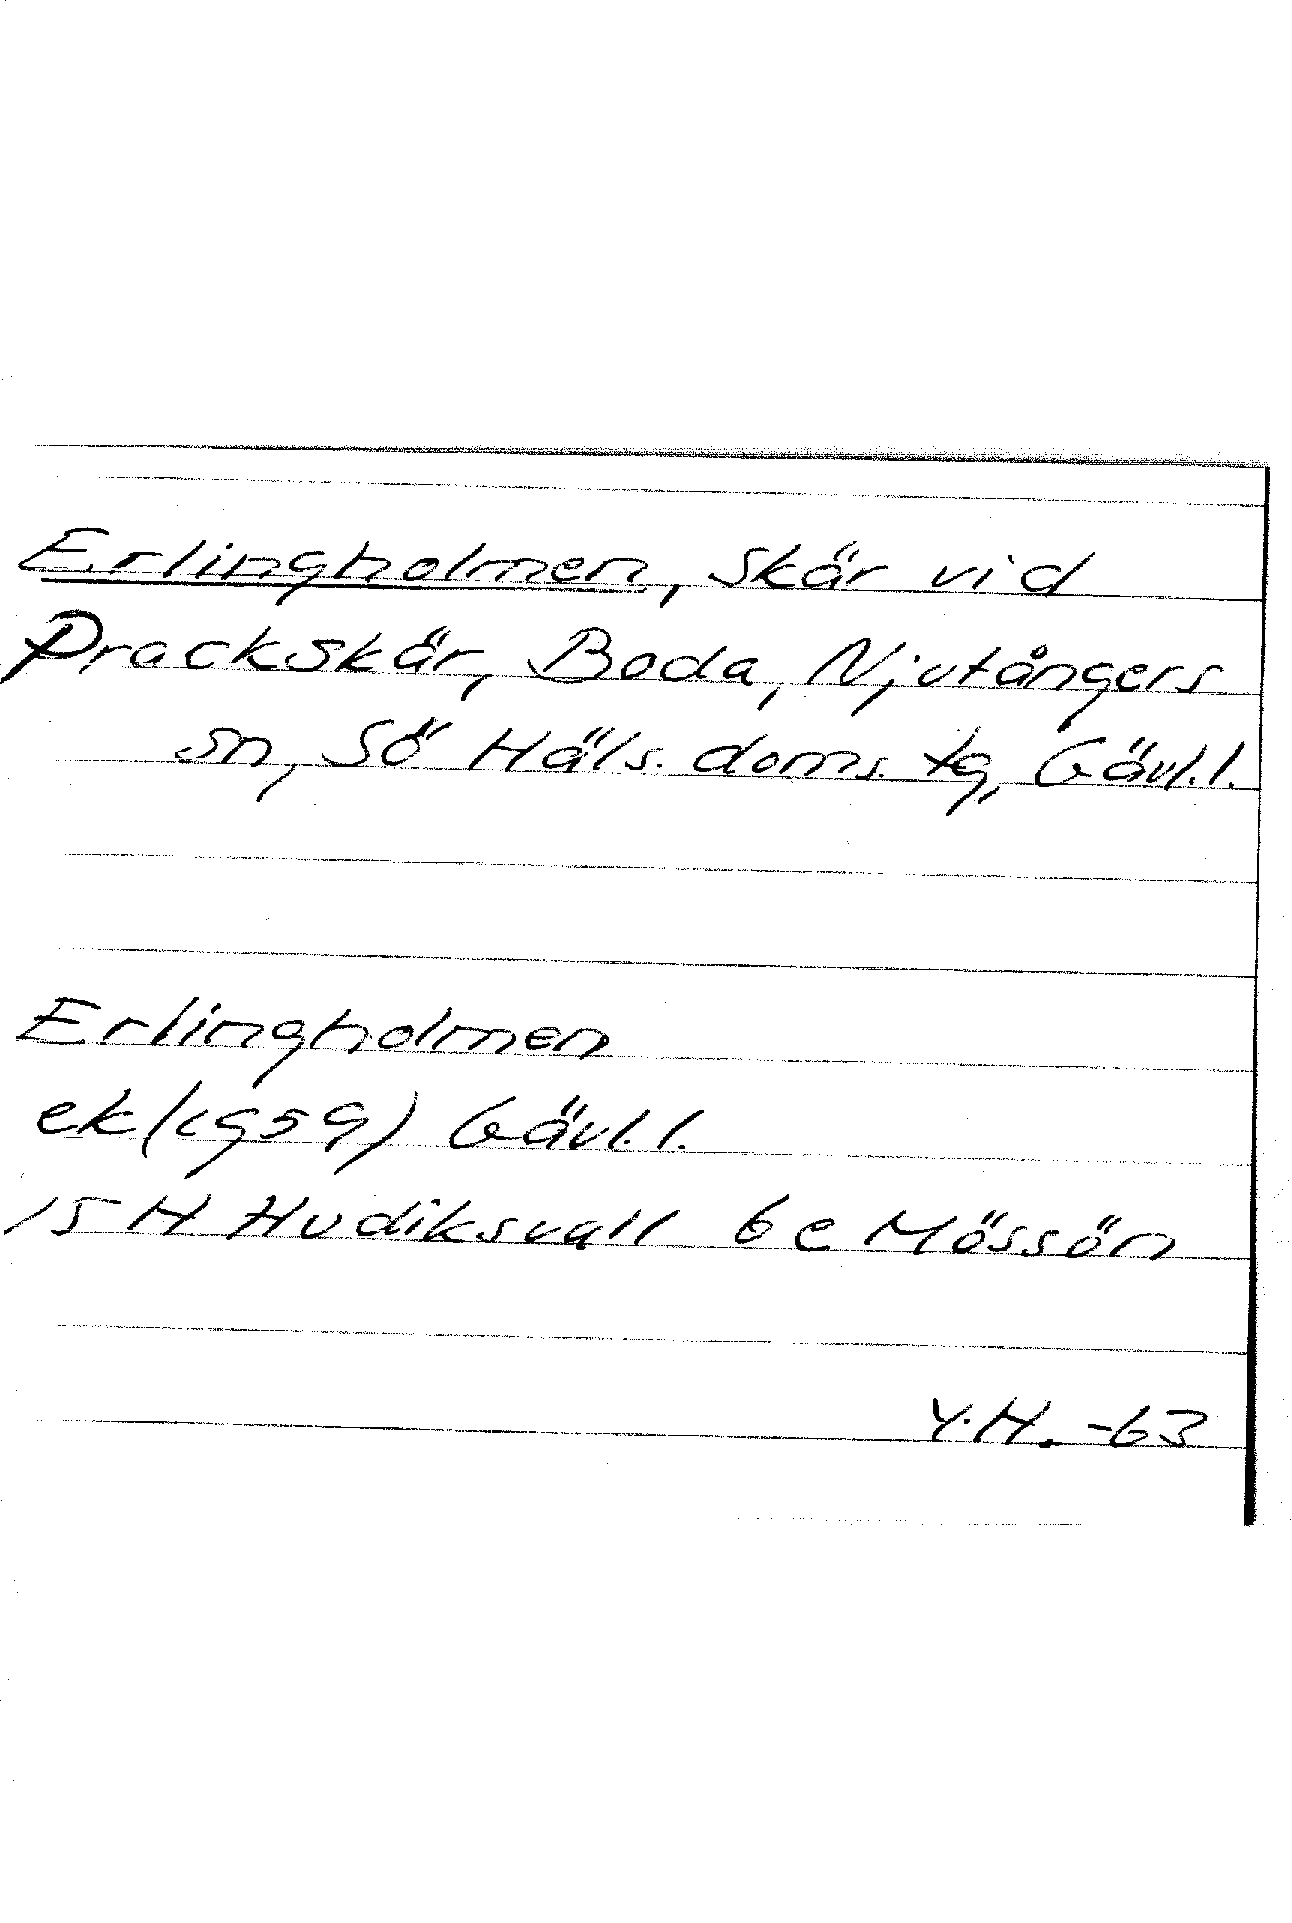 Erlingholmen, Skär vid
Prackskär, Boda, Njutångers
sn, Sö Häls. doms. tg, Gävl.l.
Erlingholmen
ek (1959) Gävl.l.
15 H Hudiksvall 6 e Mössön
Y.H. -63